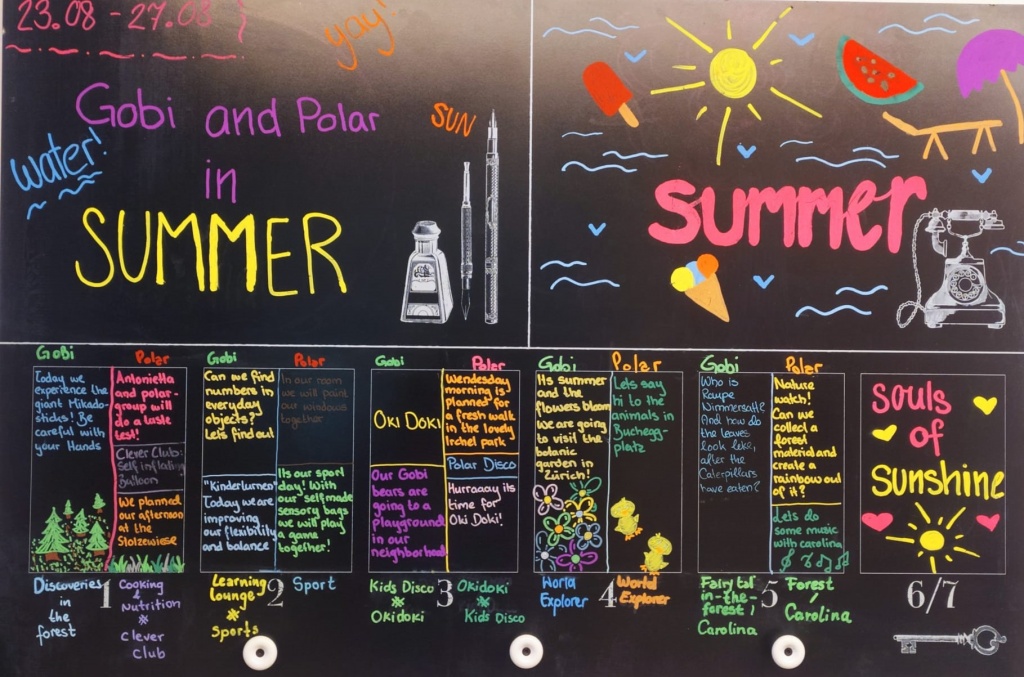 23.08 - 27.08
yay!
Gobi and Polar
in
SUMMER
Water!
SUN
summer
Gobi
Polar
Today we
experience the
giant Mikado-
sticks! Be
careful with
your Hands
Antonietta
and polar-
group will
do a taste
test!
Clever Club:
self inflating
Balloon
We planned
our afternoon
at the
Stolzewiese
Discoveries
in the
forest
1
Cooking
&
Nutrition
※
Clever
Club
Gobi
Polar
Can we find
numbers in
everyday
objects?
Lets find out
In our room
we will paint
our windows
together
"Kinderturnen"
Today we are
improving
our flexibility
and balance
Its our sport
day! With
our selfmade
sensory bags
we will play
a game
together!
Learning
lounge
※
Sports
2
Sport
Gobi
Polar
OKI DOKI
Wendesday
morning is
planned for
a fresh walk
in the lovely
Irchel park
Polar Disco
Our Gobi
bears are
going to a
playground
in our
neighborhood
Hurraaay its
time for
Oki Doki!
Kids Disco
※
Okidoki
3
Okidoki
※
Kids Disco
Gobi
Polar
Its summer
and the
flowers bloom
We are going
to visit the
botanic
garden in
Zürich!
Lets say
hi to the
animals in
Buchegg-
platz
World
Explorer
4
World
Explorer
Gobi
Polar
Who is
Raupe
Nimmersatt?
And how do
the leaves
look like,
after the
Caterpillars
have eaten?
Nature
watch!
Can we
collect a
forest
material and
create a
rainbow out
of it?
Lets do
some music
with carolina
Fairy tal
in-the-
forest /
Carolina
5
Forest
/
Carolina
Souls
of
Sunshine
6/7